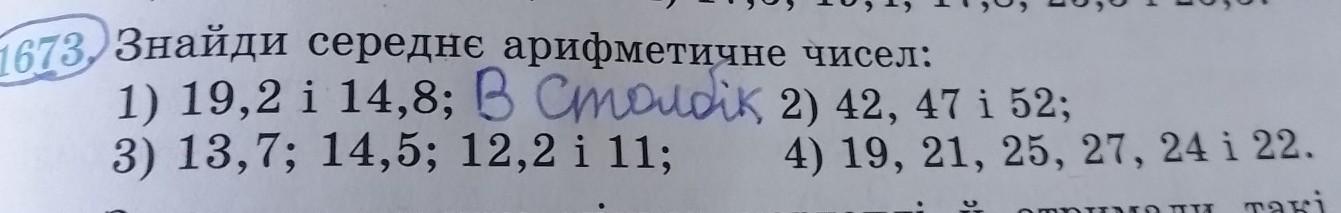 1673. Знайди середнє арифметичне чисел:
1) 19,2 і 14,8; В Столбік 2) 42, 47 і 52;
3) 13,7; 14,5; 12,2 і 11; 4) 19, 21, 25, 27, 24 і 22.
такі